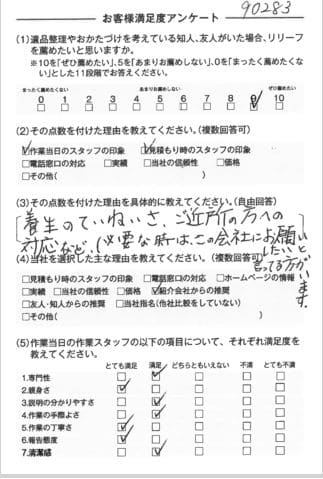 90283
お客様満足度アンケート
(1)遺品整理やおかたづけを考えている知人、友人がいた場合、リリーフ
を薦めたいと思いますか。
※10を「ぜひ薦めたい」、5を「あまりお薦めしない」、0を「まったく薦めたくな
い」とした11段階でお答えください。
まったく薦めたくない あまりお薦めしない ぜひ薦めたい
0 1 2 3 4 5 6 7 8 9 10
□ □ □ □ □ □ □ □ □ ☑ □
(2)その点数を付けた理由を教えてください。(複数回答可)
☑作業当日のスタッフの印象 ☑見積もり時のスタッフの印象
□電話窓口の対応 □実績 □当社の信頼性 □価格
□その他( )
(3)その点数を付けた理由を具体的に教えてください。(自由回答)
養生のていねいさ、ご近所の方への
対応など、必要な時は、この会社にお願いしたいと
言ってる方がいます。
(4)当社を選択した主な理由を教えてください。(複数回答可)
□見積もり時のスタッフの印象 □電話窓口の対応 □ホームページの情報
□実績 □当社の信頼性 □価格 ☑紹介会社からの推奨
□友人・知人からの推奨 □当社指名(他社比較をしていない)
□その他( )
(5)作業当日の作業スタッフの以下の項目について、それぞれ満足度を
教えてください。
とても満足 満足 どちらともいえない 不満 とても不満
1.専門性 □ ☑ □ □ □
2.親身さ ☑ □ □ □ □
3.説明の分かりやすさ □ ☑ □ □ □
4.作業の手際よさ □ ☑ □ □ □
5.作業の丁寧さ ☑ □ □ □ □
6.報告態度 ☑ □ □ □ □
7.清潔感 □ ☑ □ □ □